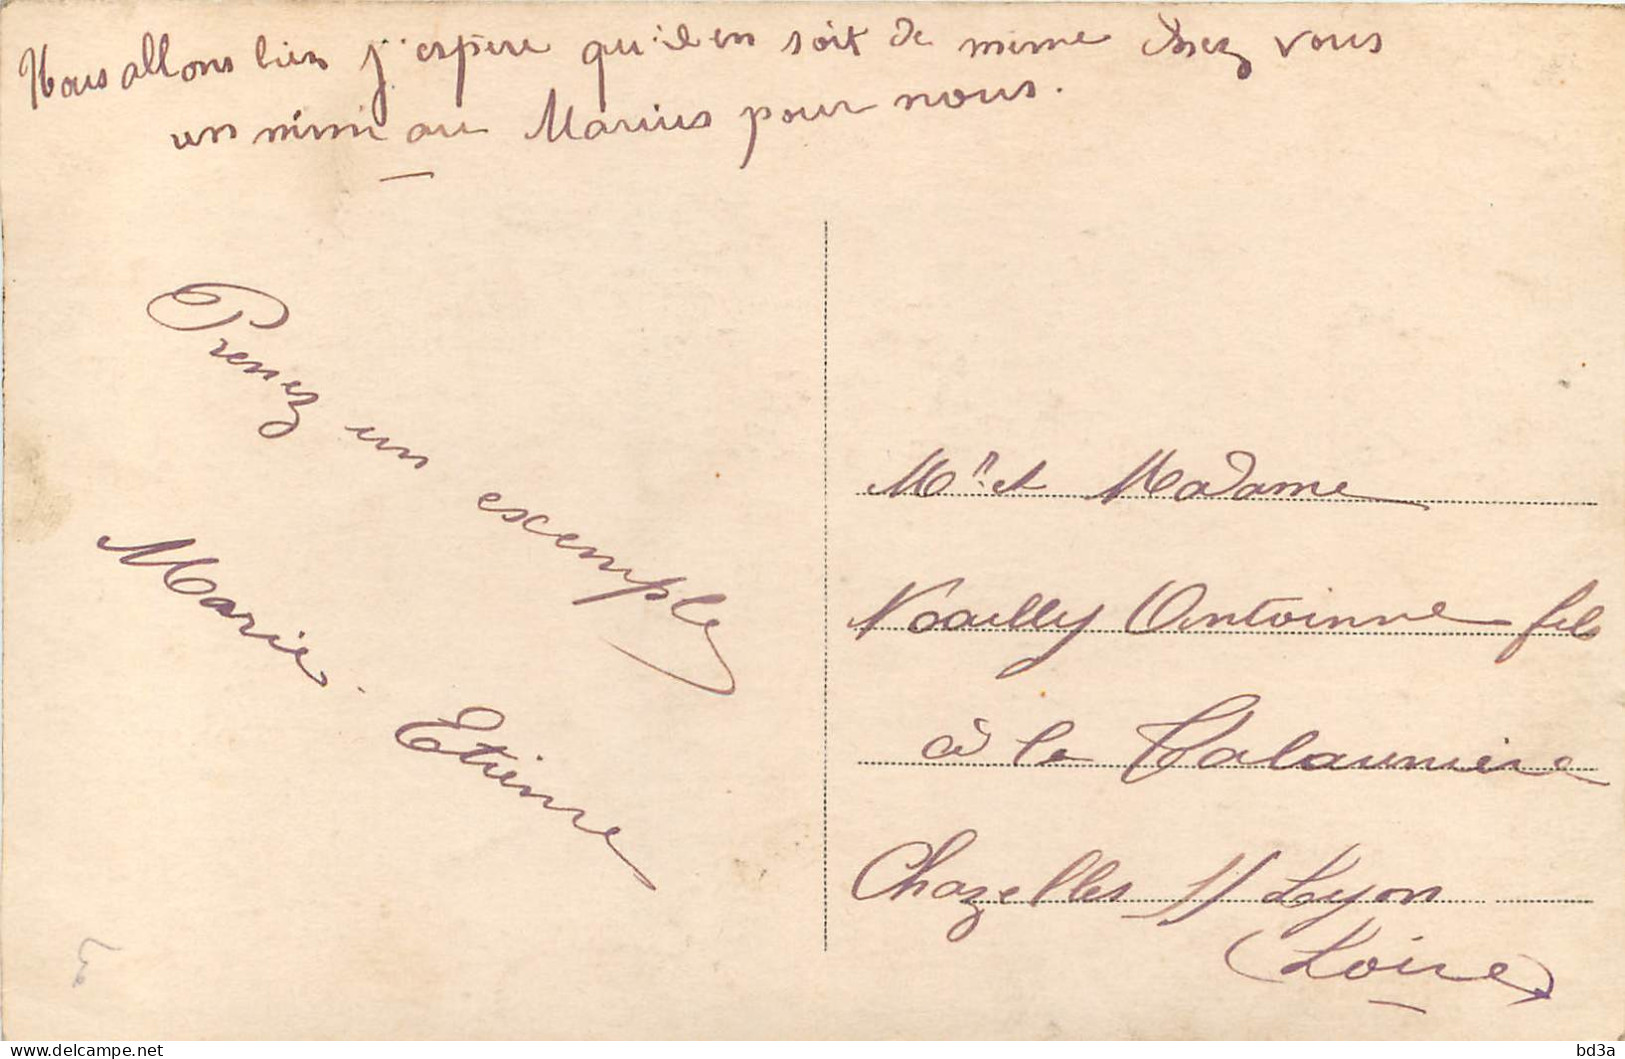 Nous allons bien j'espere qu'il en soit de mime chez vous
un mimi au Marius pour nous.
Prenez un exemple
Marie. Etienne
Mr. et Madame
Noailly Antoinne fils
à la Calaumière
Chazelles s/ Lyon
(Loire)
bd3a